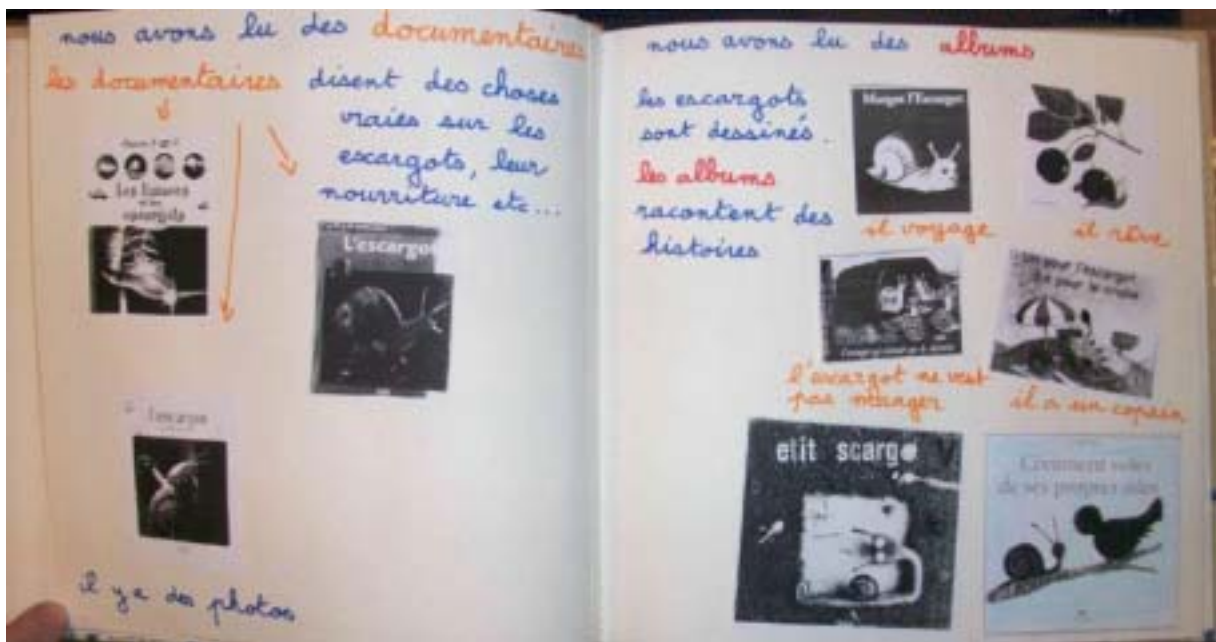 nous avons lu des documentaires
les documentaires disent des choses
vraies sur les
escargots, leur
nourriture etc...
Les limaces
et les
escargots
L'escargot
L'escargot
il y a des photos
nous avons lu des albums
les escargots
sont dessinés.
les albums
racontent des
histoires
Margot l'Escargot
il voyage
il rêve
Un pour l'escargot
l'escargot ne veut
pas manger
il a un copain
etit scargo
Comment voler
de ses propres ailes